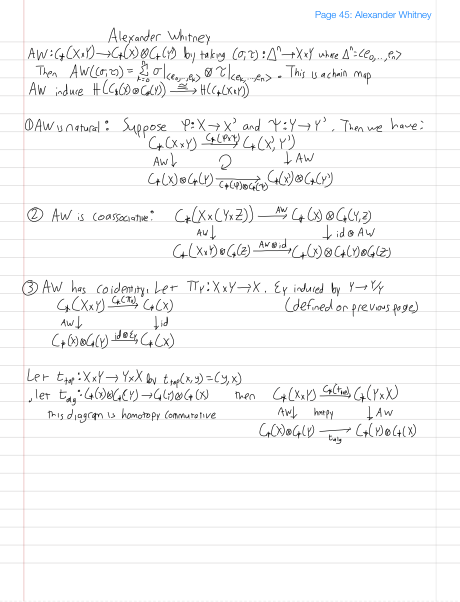 Page 45: Alexander Whitney
Alexander Whitney
AW: C*(X×Y) → C*(X)⊗C*(Y) by taking (σ,τ): Δⁿ → X×Y where Δⁿ=<e₀,...,eₙ>
Then AW((σ,τ)) = Σₖ₌₀ⁿ σ|<e₀,...,eₖ> ⊗ τ|<eₖ,...,eₙ>. This is a chain map
AW induce H(C*(X)⊗C*(Y)) ≅→ H(C*(X×Y))
① AW is natural: Suppose φ: X→X' and Ψ: Y→Y'. Then we have:
C*(X×Y) C*(φ×Ψ)→ C*(X',Y')
AW↓ ↓AW
C*(X)⊗C*(Y) C*(φ)⊗C*(Ψ)→ C*(X')⊗C*(Y')
② AW is coassociative: C*(X×(Y×Z)) AW→ C*(X)⊗C*(Y,Z)
AW↓ ↓id⊗AW
C*(X×Y)⊗C*(Z) AW⊗id→ C*(X)⊗C*(Y)⊗C*(Z)
③ AW has coidentity. Let πY: X×Y→X, εY induced by Y→Y/Y
C*(X×Y) C*(πY)→ C*(X) (defined on previous page)
AW↓ ↓id
C*(X)⊗C*(Y) id⊗εY→ C*(X)
Let t_top: X×Y→Y×X by t_top(x,y)=(y,x)
, let t_alg: C*(X)⊗C*(Y)→C*(Y)⊗C*(X) then C*(X×Y) C*(t_top)→ C*(Y×X)
This diagram is homotopy commutative AW↓ ↓AW
C*(X)⊗C*(Y) t_alg→ C*(Y)⊗C*(X)